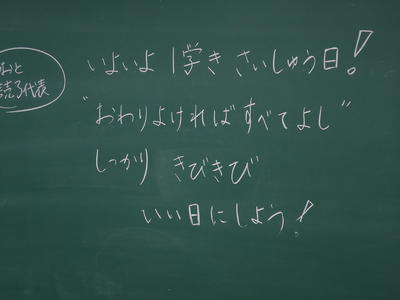 いよいよ 1学き さいしゅう日!
"おわりよければ すべてよし"
しっかり きびきび
いい日にしよう!
読る代表